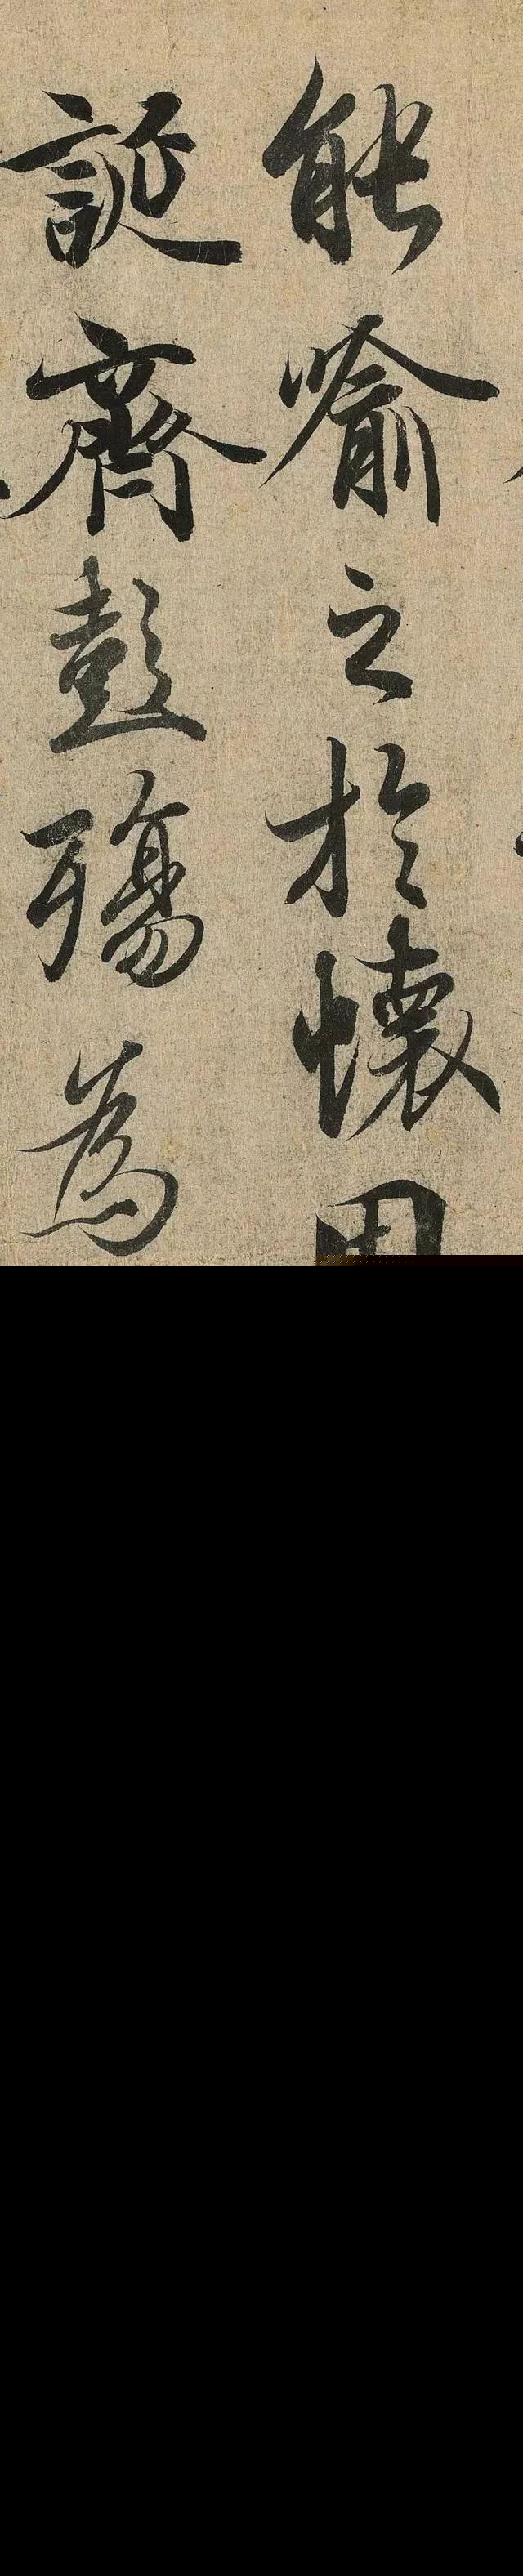 能喻之於懷
誕齊彭殤為